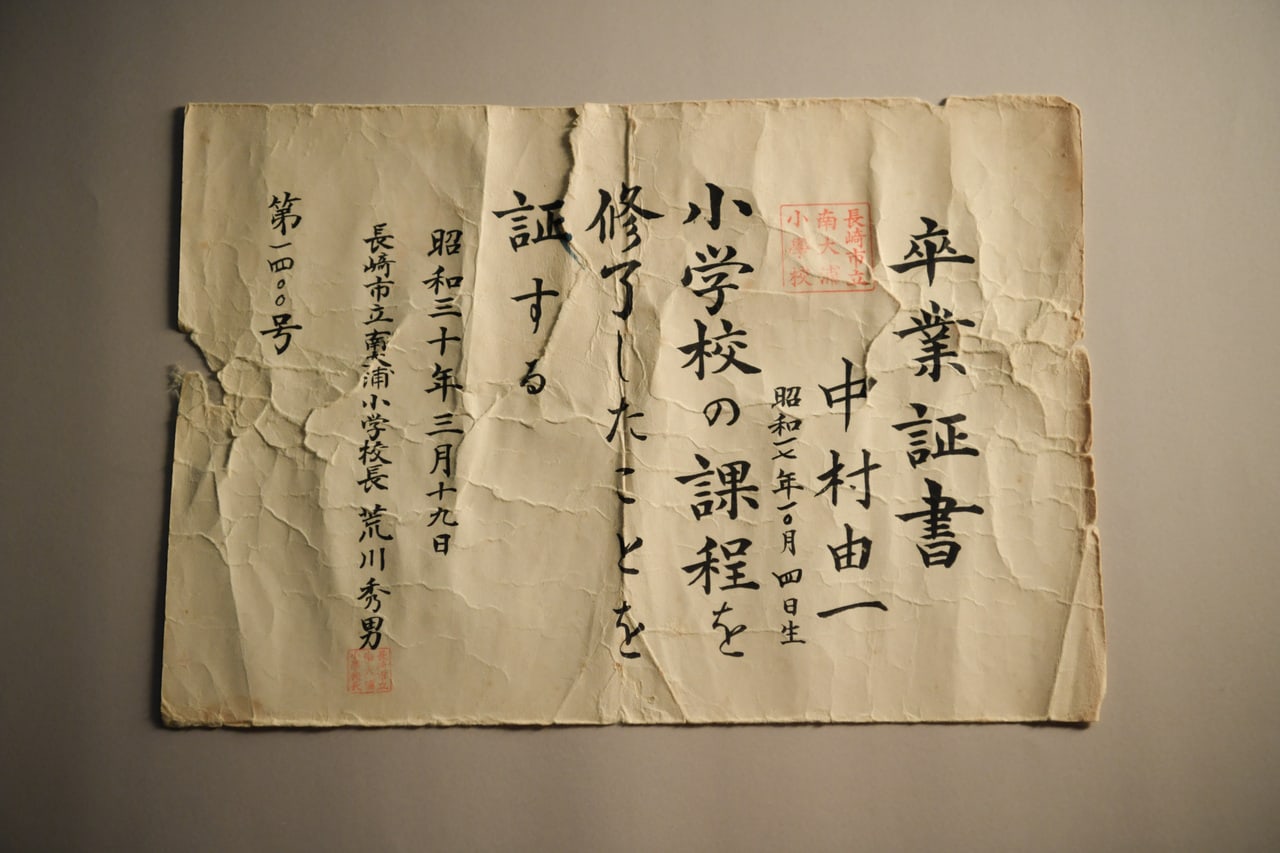 卒業証書
長崎市立
南大浦
小學校
中村由一
昭和一七年一〇月四日生
小学校の課程を
修了したことを
証する
昭和三十年三月十九日
長崎市立南大浦小学校長 荒川秀男
第一四〇〇号